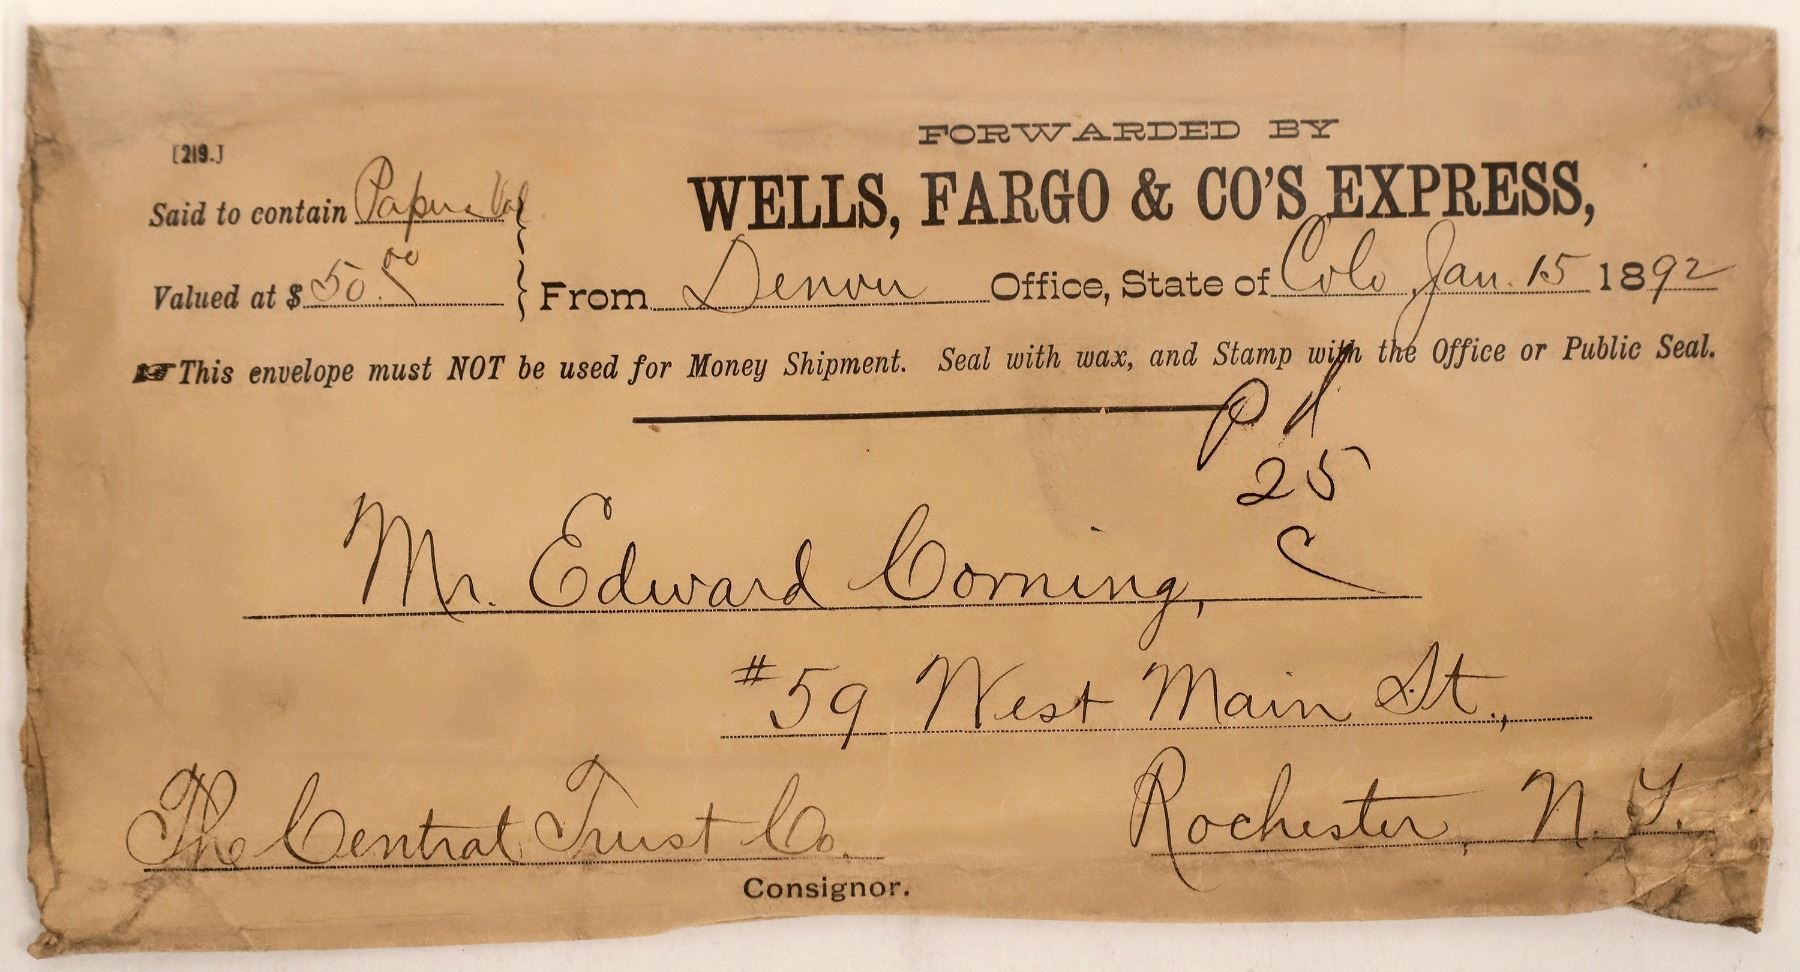 FORWARDED BY
[219.]
WELLS, FARGO & CO'S EXPRESS,
Said to contain Papers Val
Valued at $ 50.00 From Denver Office, State of Colo Jan. 15 1892
☞ This envelope must NOT be used for Money Shipment. Seal with wax, and Stamp with the Office or Public Seal.
Pd
25
c
Mr. Edward Corning,
#59 West Main St.,
Rochester, N.Y.
The Central Trust Co.
Consignor.